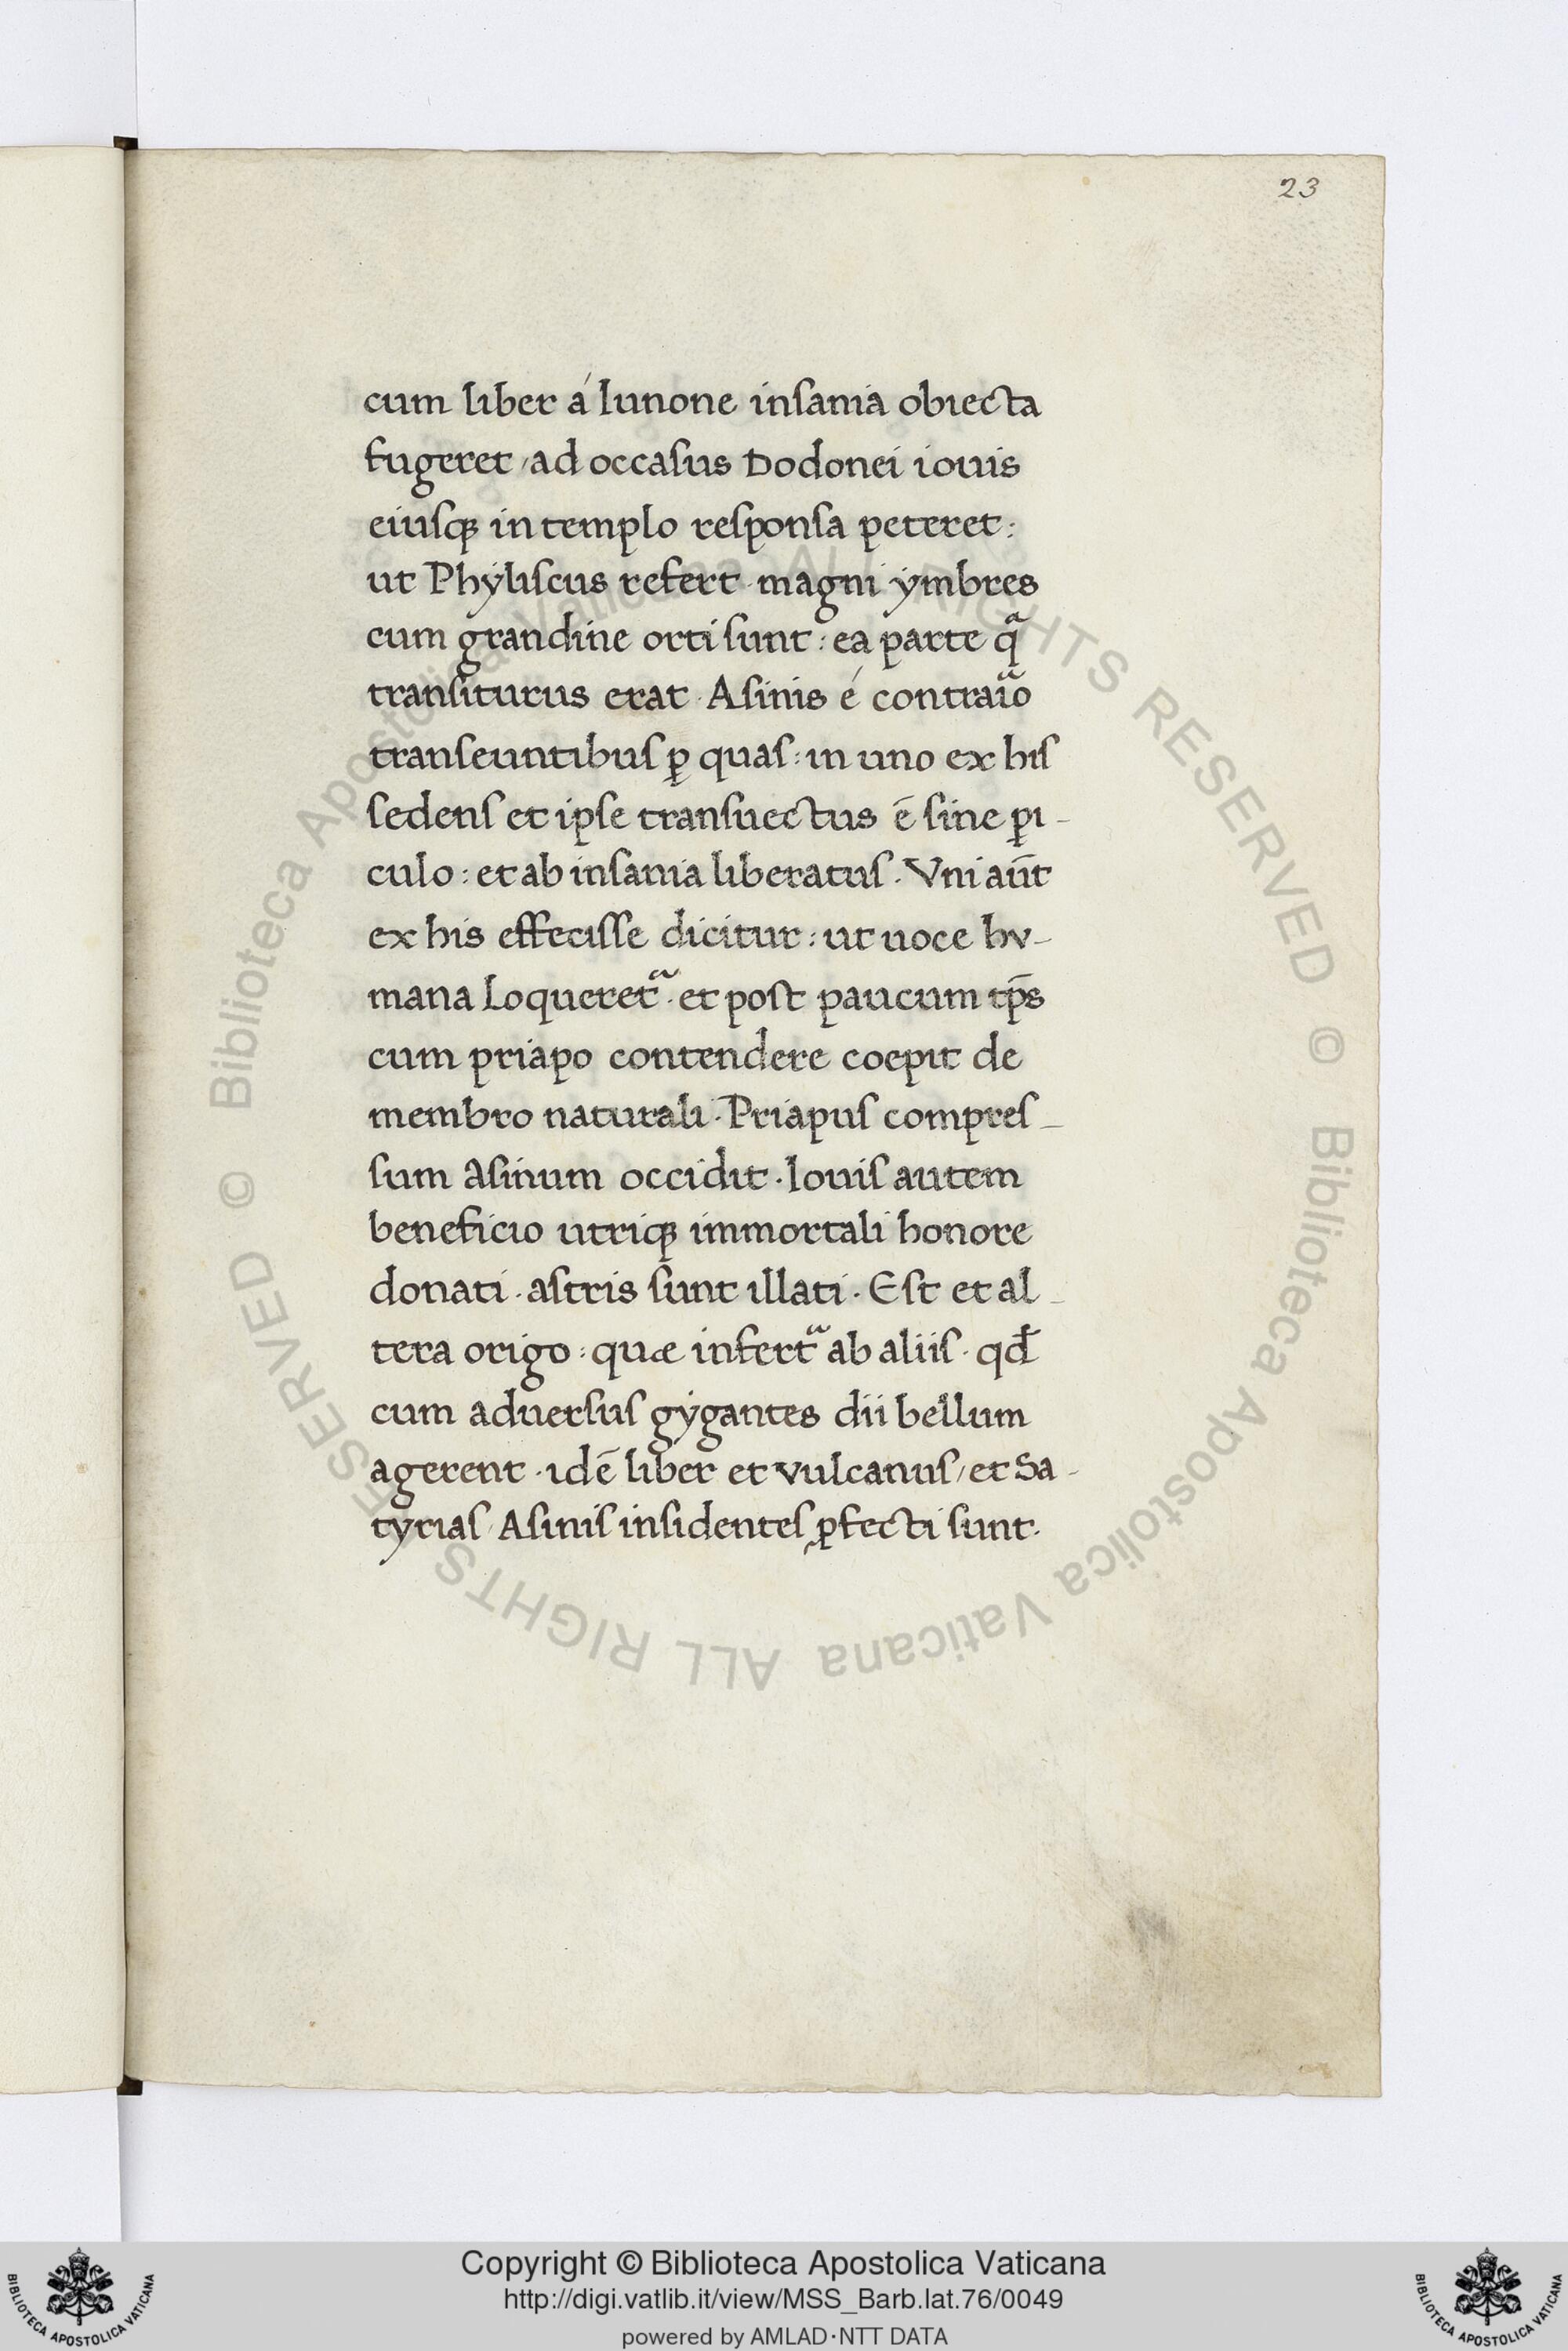 23
cum liber á Iunone insania obiecta
fugeret / ad occasus Dodonei iouis
eiusqꝫ in templo responsa peteret :
ut Phẏliscus refert · magni ẏmbres
cum grandine orti sunt : ea parte qᷓ
transiturus erat · Asinis é contraı̃o
transeuntibus ꝑ quas : in uno ex his
sedens et ipse transuectus ē sine ꝑi -
culo : et ab insania liberatus . Vni aūt
ex his effecisse dicitur : ut uoce hv -
mana loqueret᷑ · et post paucum tp̄s
cum priapo contendere coepit de
membro naturali · Priapus compres -
sum asinum occidit · Iouis autem
beneficio utriqꝫ immortali honore
donati · astris sunt illati · Est et al -
tera origo : quae infert᷑ ab aliis · qđ
cum aduersus gẏgantes dii bellum
agerent · idē liber et vulcanus / et Sa -
tyrias / Asinis insidentes ꝓfecti sunt ·
© Biblioteca Apostolica Vaticana ALL RIGHTS RESERVED © Biblioteca Apostolica Vaticana ALL RIGHTS RESERVED
BIBLIOTECA APOSTOLICA VATICANA
Copyright © Biblioteca Apostolica Vaticana
http://digi.vatlib.it/view/MSS_Barb.lat.76/0049
powered by AMLAD·NTT DATA
BIBLIOTECA APOSTOLICA VATICANA